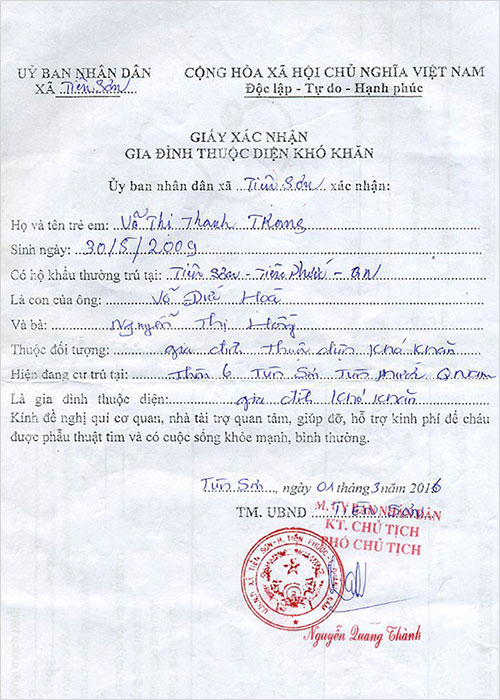 UỶ BAN NHÂN DÂN
CỘNG HÒA XÃ HỘI CHỦ NGHĨA VIỆT NAM
XÃ Tiên Sơn
Độc lập - Tự do - Hạnh phúc
GIẤY XÁC NHẬN
GIA ĐÌNH THUỘC DIỆN KHÓ KHĂN
Ủy ban nhân dân xã Tiên Sơn xác nhận:
Họ và tên trẻ em: Võ Thị Thanh Trang
Sinh ngày: 30/5/2009
Có hộ khẩu thường trú tại: Tiên Sơn - Tiên Phước - QN
Là con của ông: Võ Đức Hoà
Và bà: Nguyễn Thị Hồng
Thuộc đối tượng: gia đình thuộc diện khó khăn
Hiện đang cư trú tại: Thôn 6 Tiên Sơn Tiên Phước QNam
Là gia đình thuộc diện: gia đình khó khăn
Kính đề nghị qui cơ quan, nhà tài trợ quan tâm, giúp đỡ, hỗ trợ kinh phí để cháu
được phẫu thuật tim và có cuộc sống khỏe mạnh, bình thường.
Tiên Sơn, ngày 01 tháng 3 năm 2016
TM. UBND TIÊN SƠN
M. ỦY BAN NHÂN DÂN
KT. CHỦ TỊCH
PHÓ CHỦ TỊCH
U.B.N.D XÃ TIÊN SƠN - H. TIÊN PHƯỚC
Nguyễn Quang Thành